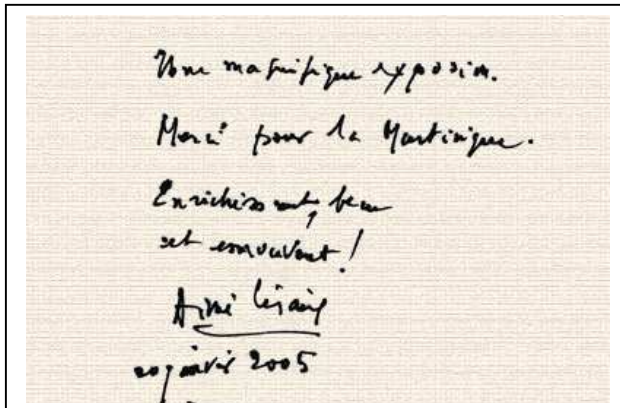 Une magnifique exposition.
Merci pour la Martinique.
Enrichissant, beau
et émouvant !
Aimé Césaire
20 janvier 2005